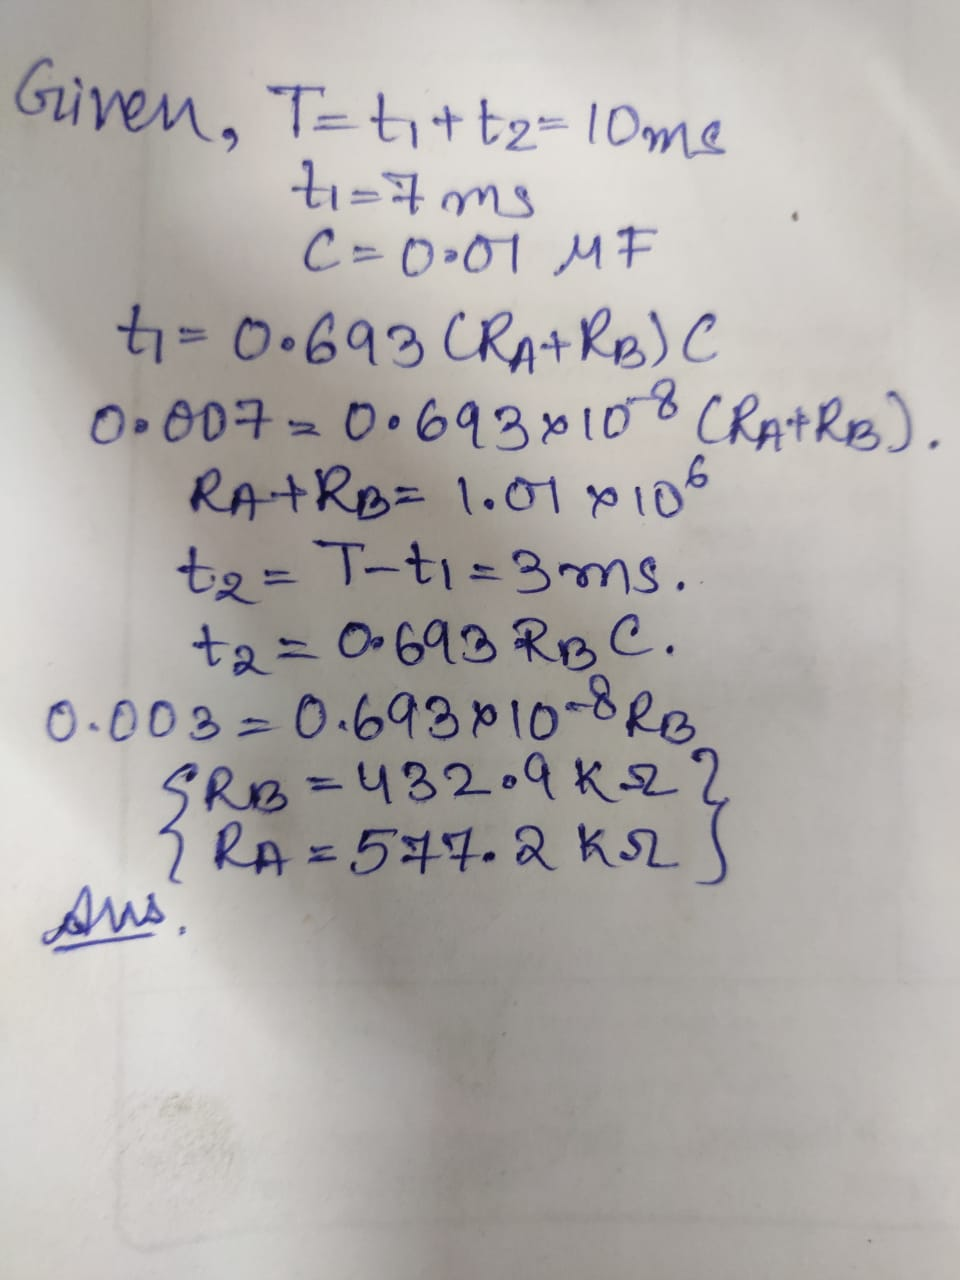 Given, T = t1 + t2 = 10ms
t1 = 7 ms
C = 0.01 μF
t1 = 0.693 (RA+RB) C
0.007 = 0.693 × 10^-8 (RA+RB).
RA+RB = 1.01 × 10^6
t2 = T - t1 = 3 ms.
t2 = 0.693 RB C.
0.003 = 0.693 × 10^-8 RB
{ RB = 432.9 KΩ }
{ RA = 577.2 KΩ }
Ans.